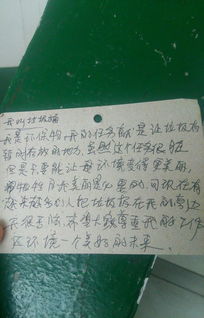 我叫垃圾桶
我是环保物，我的任务就是让垃圾有
暂时存放的地方，虽然这个任务很脏
但是只要能让环境变得更美丽，
我是 的，可现在有
越来越多的人把垃圾放在我的旁边
我很苦恼，希望大家尊重我的工作
还环境一个美好的未来